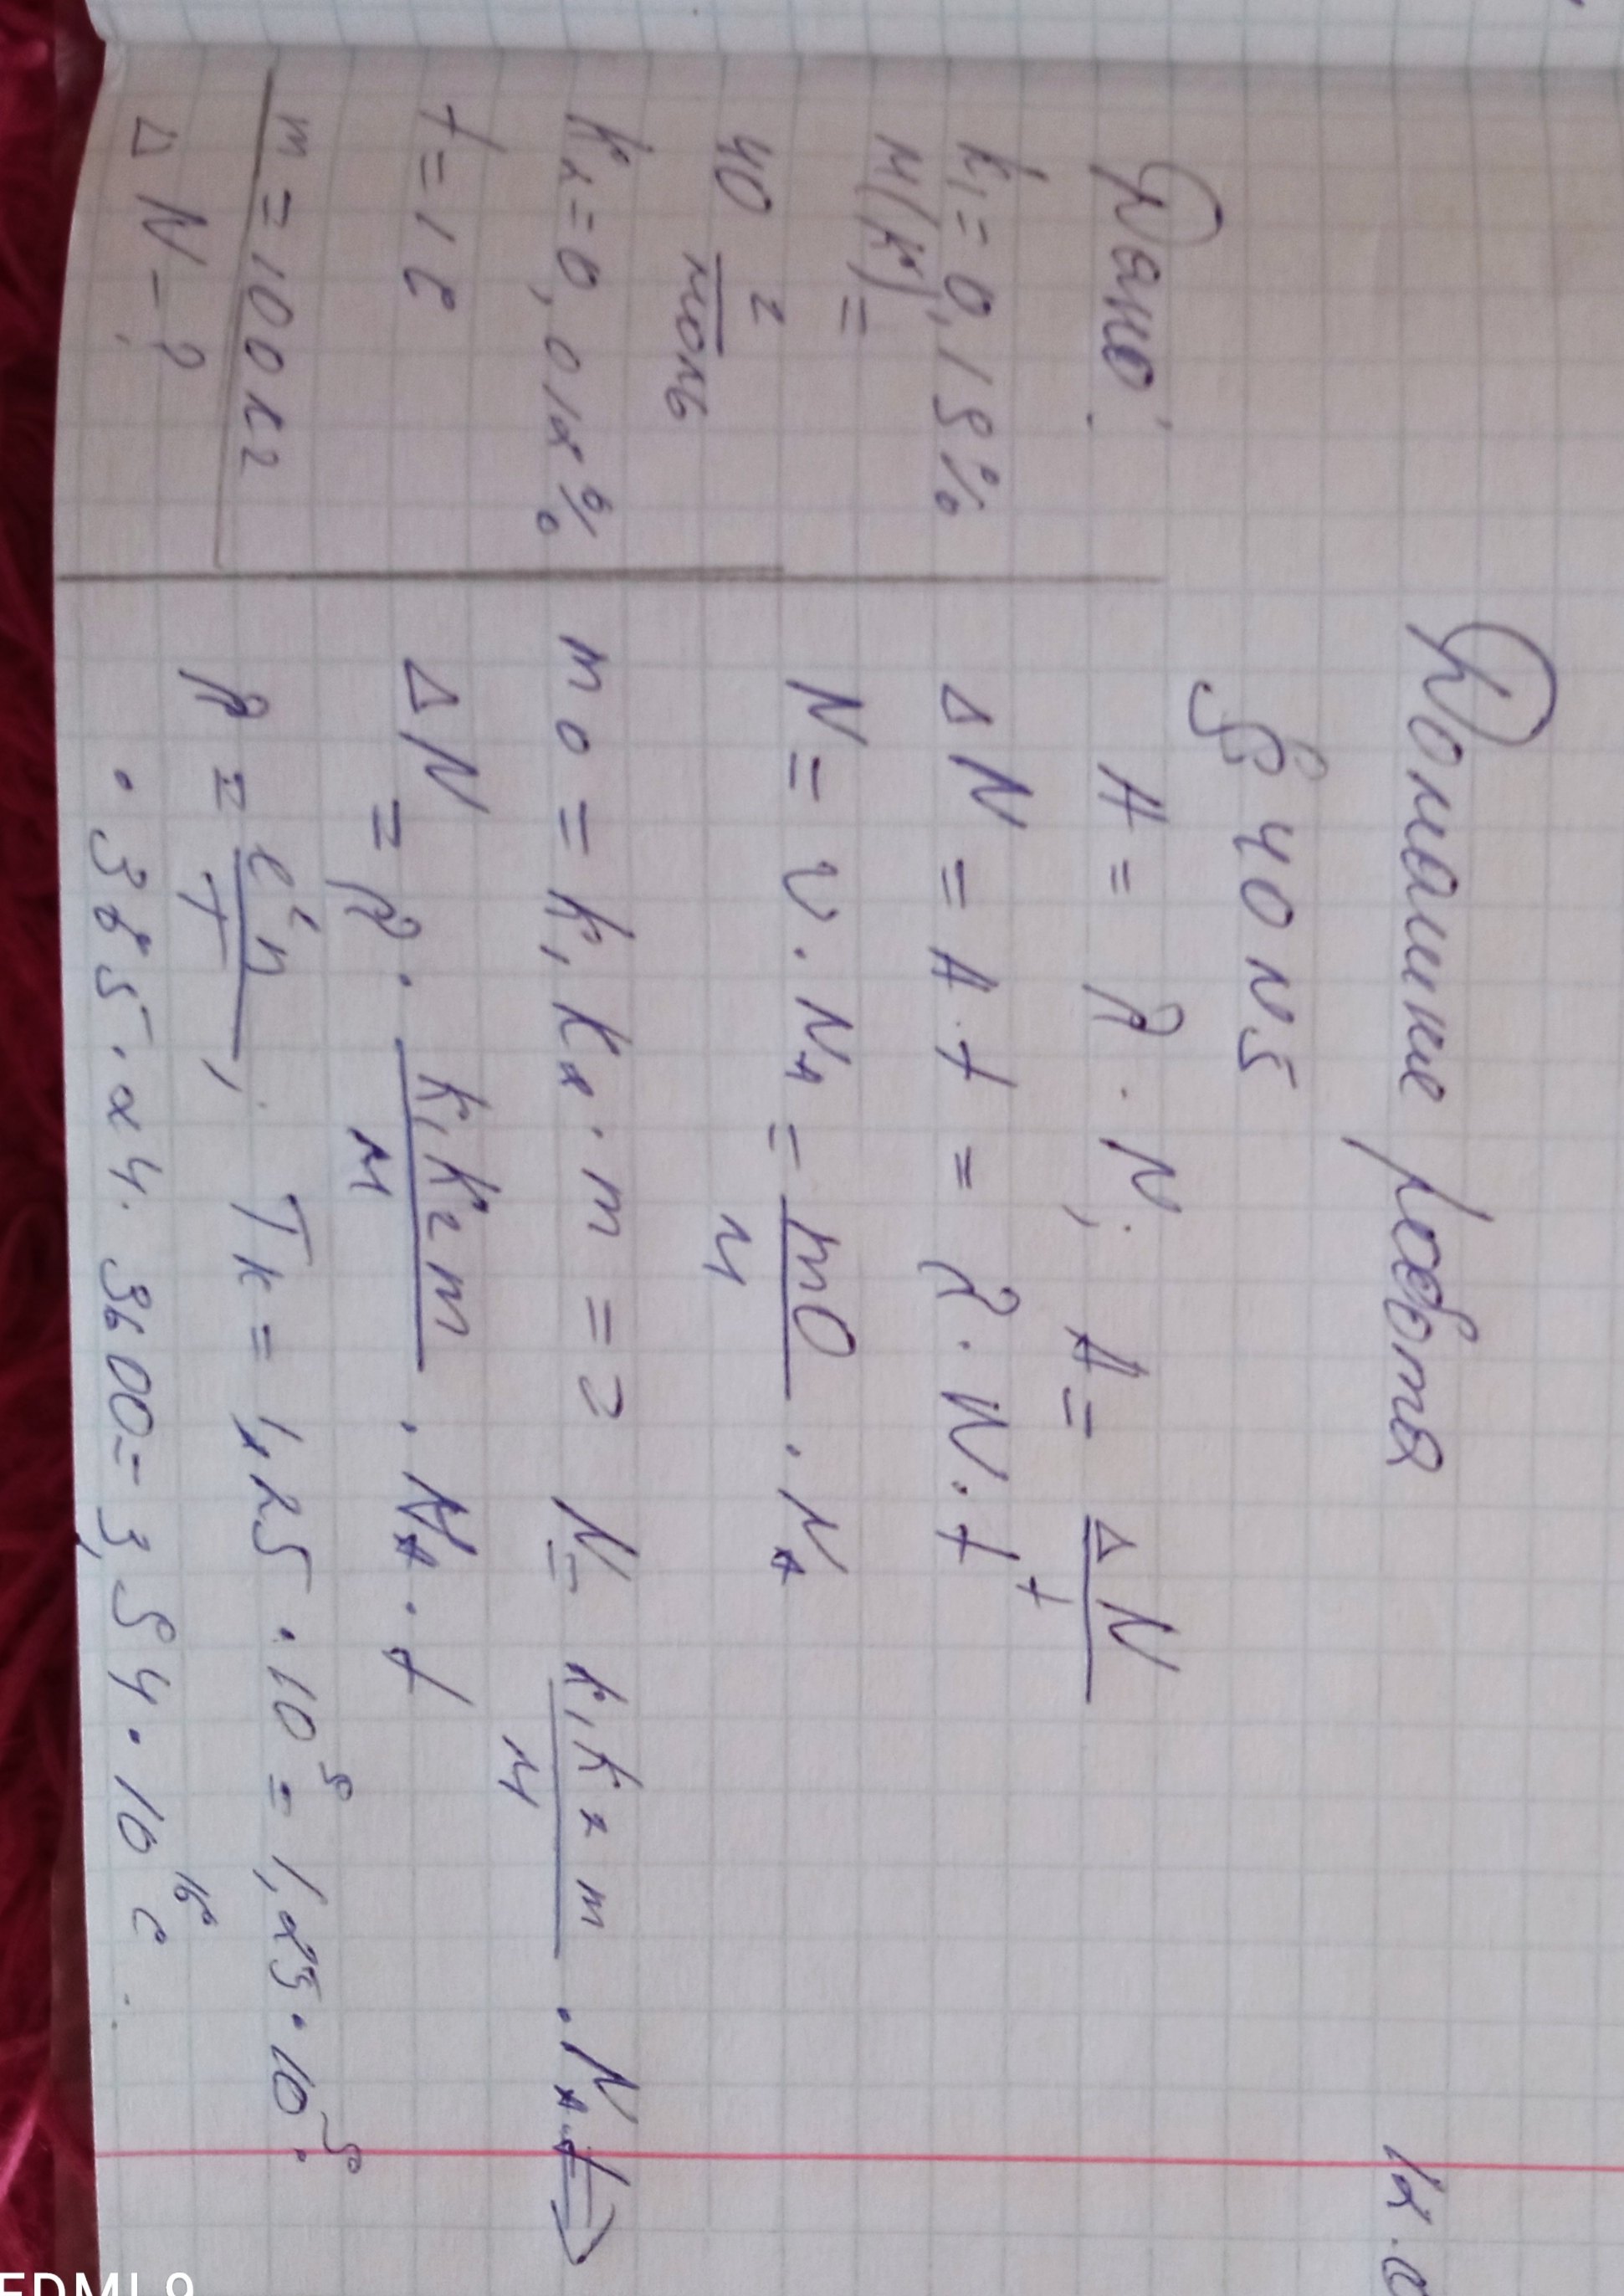 Домашне робота
12.0
§ 40 N5
Дано:
k₁ = 0,19%
M(K) =
40 г/моль
k₂ = 0,012%
t = 1 с
m = 100 кг
ΔN - ?
A = λ · N; A = ΔN/t
ΔN = A · t = λ · N · t
N = ν · Nₐ = m0/M · Nₐ
m0 = k₁ k₂ · m => N = k₁k₂m/M · Nₐ =>
ΔN = λ · k₁k₂m/M · Nₐ · t
λ = ln/T; Tк = 1,25 · 10⁹ = 1,25 · 10⁹ ·
· 365 · 24 · 3600 = 3,94 · 10¹⁶ с